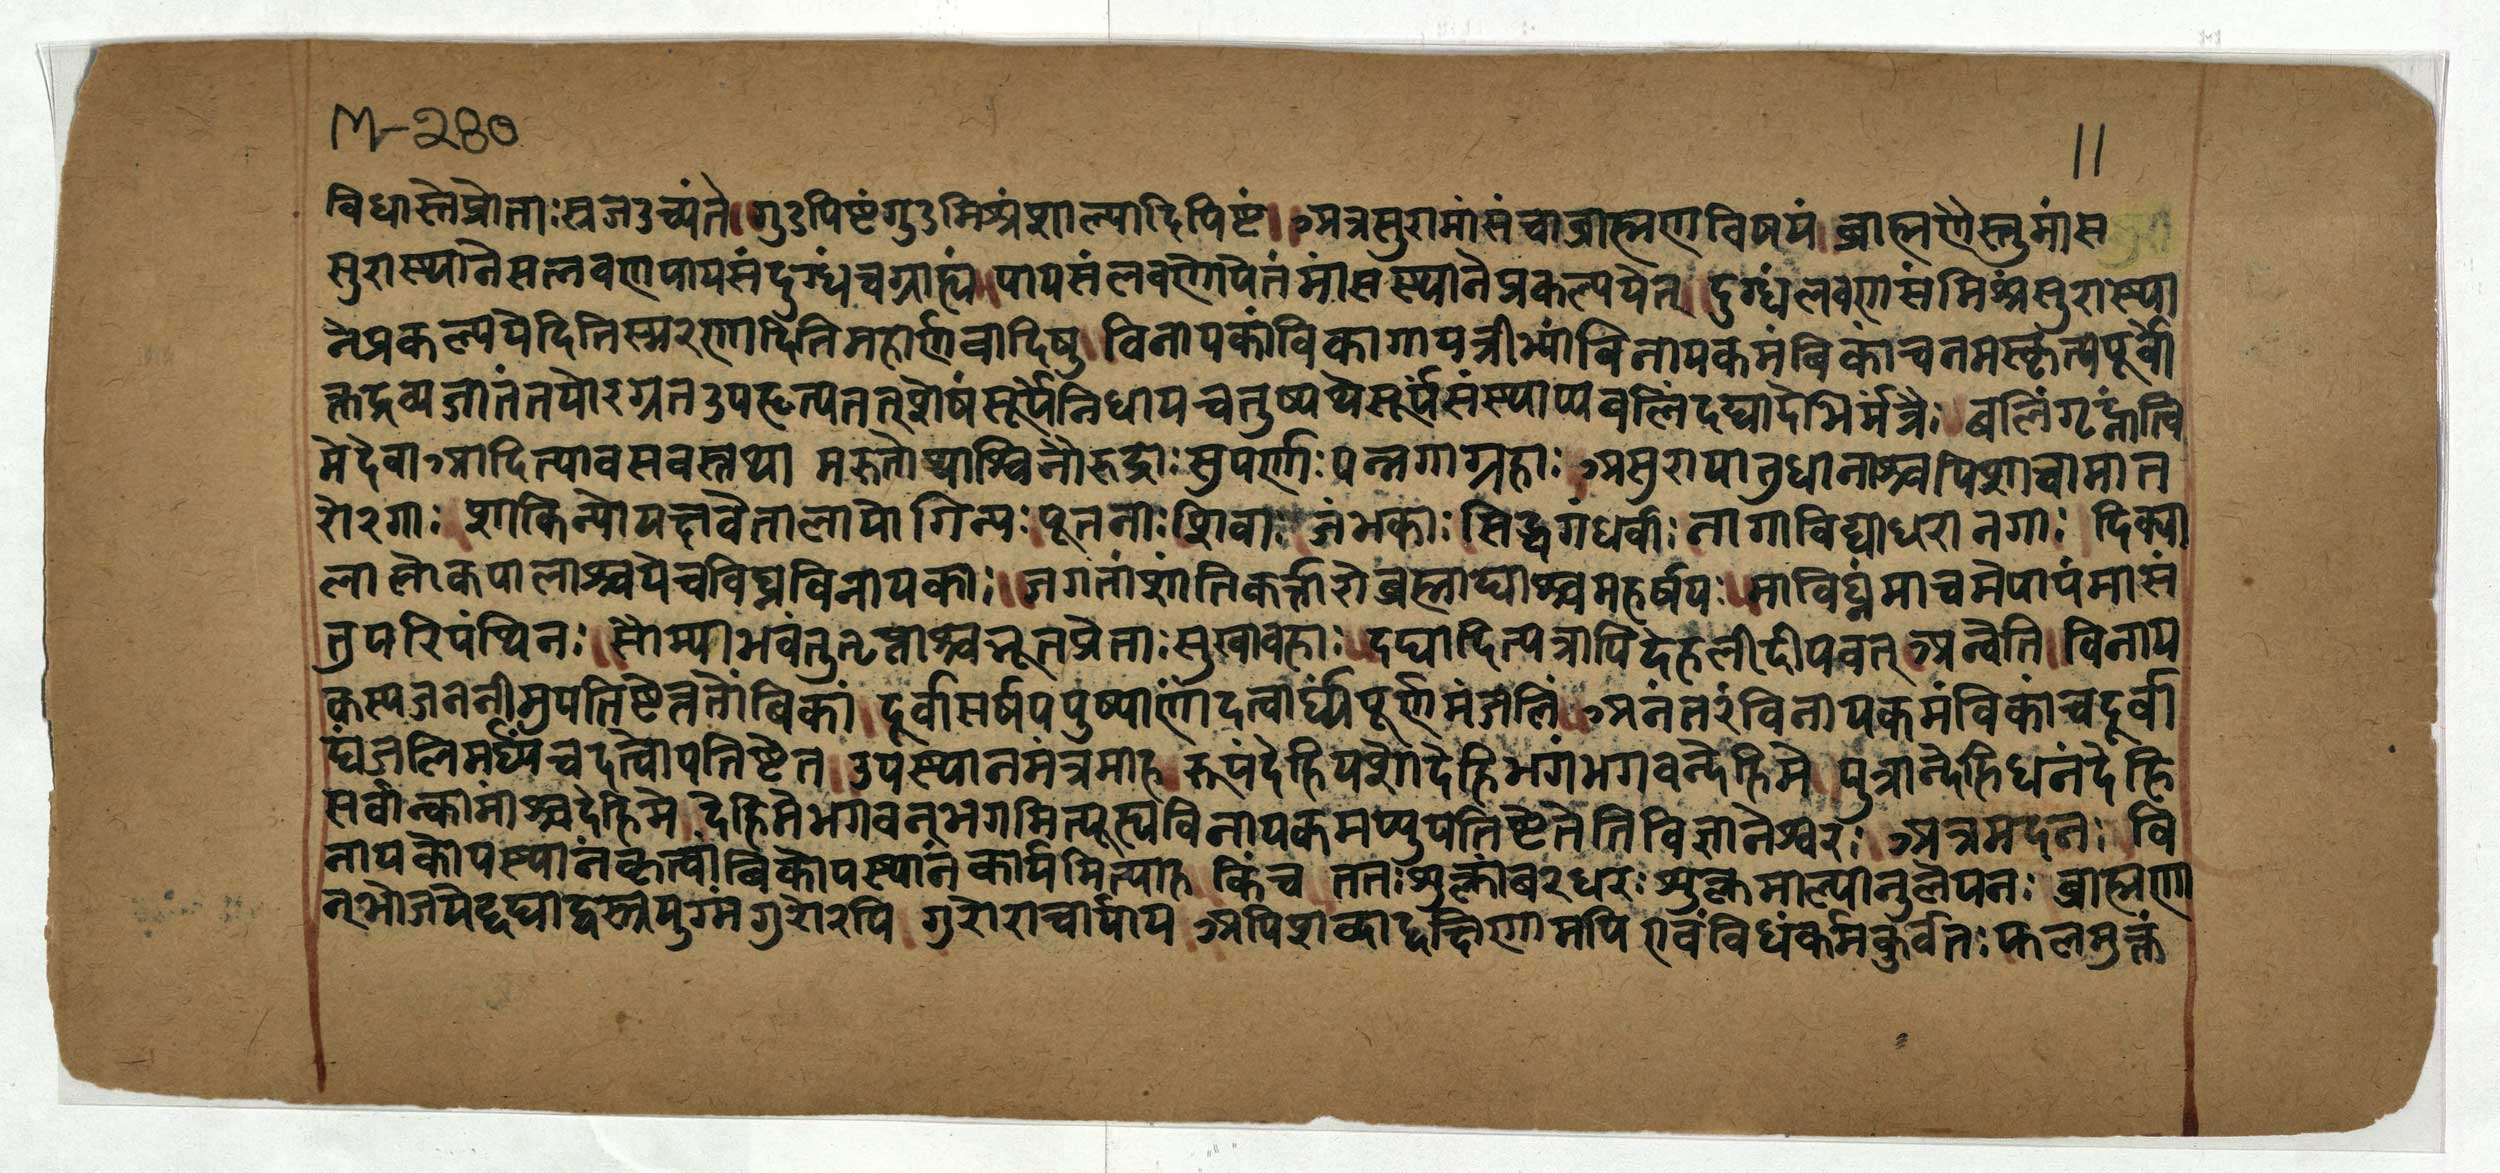 M-२४०
11
विधास्तैप्रोताःस्रजउच्यंते॥गुडपिष्टंगुडमिश्रंशाल्यादिपिष्टं॥अत्रसुरामांसंचाब्राह्मणविषयं॥ब्राह्मणैस्तुमांस
सुरास्थानेसलवणपायसंदुग्धंचग्राह्यं॥पायसंलवणोपेतंमांसस्थानेप्रकल्पयेत्॥दुग्धंलवणसंमिश्रंसुरास्था
नेप्रकल्पयेदितिस्मरणादितिमहार्णवादिषु॥विनायकांबिकागायत्रीभ्यांविनायकमंबिकांचनमस्कृत्यपूर्वो
क्तद्रव्यजातंतयोरग्रतउपहृत्यतत्शेषंसूर्पेनिधायचतुष्पथेसूर्पंसंस्थाप्यबलिंदद्यादेभिर्मंत्रैः॥बलिंगृह्णंत्वि
मेदेवाआदित्यावसवस्तथा॥मरुतोथाश्विनौरुद्राःसुपर्णाःपन्नगाग्रहाः॥असुरायातुधानाश्चपिशाचामात
रोरगाः॥शाकिन्योयक्षवेतालायोगिन्यःपूतनाःशिवाः॥जंभकाःसिद्धगंधर्वाःनागाविद्याधरानगाः॥दिक्पा
लालोकपालाश्चयेचविघ्नविनायकाः॥जगतांशांतिकर्त्तारोब्रह्माद्याश्चमहर्षयः॥माविघ्नंमाचमेपापंमासं
तुपरिपंथिनः॥सौम्याभवंतुतृप्ताश्चभूतप्रेताःसुखावहाः॥दद्यादित्यत्रापिदेहलीदीपवत्अन्वेति॥विनाय
कस्यजननीमुपतिष्टेत्ततोंबिकां॥दूर्वासर्षपपुष्पाणांदत्वार्घ्यंपूर्णमंजलिं॥अनंतरंविनायकमंबिकांचदूर्वा
द्यंजलिमर्घ्यंचदत्वोपतिष्टेत॥उपस्थानमंत्रमाह॥रूपंदेहियशोदेहिभगंभगवन्देहिमे॥पुत्रान्देहिधनंदेहि
सर्वान्कामांश्चदेहिमे॥देहिमेभगवन्भगमित्यूह्यविनायकमप्युपतिष्टेतेतिविज्ञानेश्वरः॥अत्रमदनः॥वि
नायकोपस्थानंकृत्वांबिकोपस्थानंकार्यमित्याह॥किंच॥ततःशुक्लांबरधरःशुक्लमाल्यानुलेपनः॥ब्राह्मणा
न्भोजयेद्दद्याद्वस्त्रयुग्मंगुरोरपि॥गुरोराचार्याय॥अपिशब्दाद्दक्षिणामपि॥एवंविधंकर्मकुर्वतःफलमुक्तं